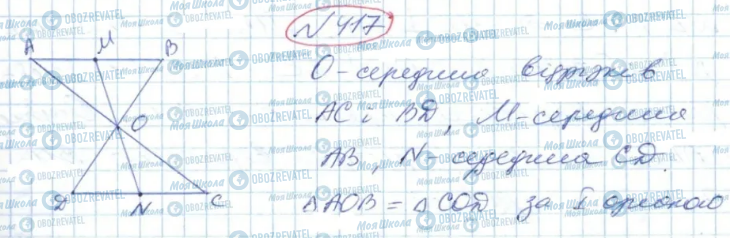 №417
A M B
O - середина відрізків
O
AC і BD, M - середина
AB, N - середина CD.
D N C
△AOB = △COD за I ознакою
Моя Школа
OBOZREVATEL